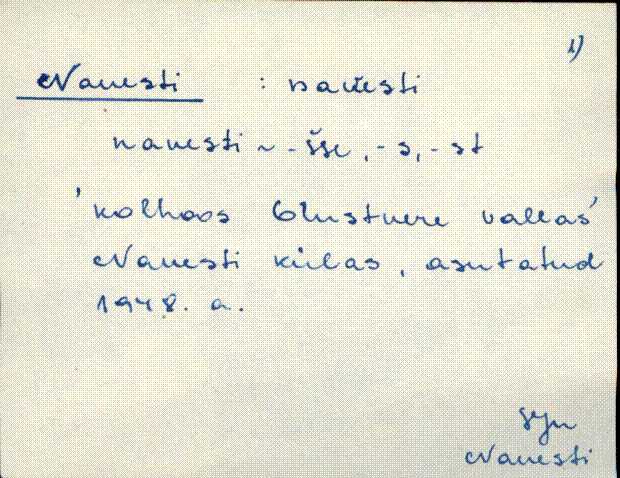 1)
Navesti : nav́esti
navesti ~ -šse, -s, -st
'kolhoos Olustvere vallas'
Navesti külas, asutatud
1948. a.
SJn
Navesti